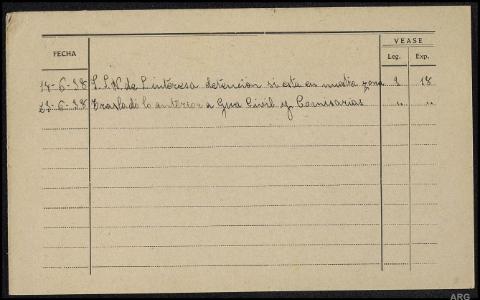 VEASE
FECHA Leg. Exp.
14-6-38 S.I.N. de L interesa detención si esta en nuestra zona 9 18
23-6-38 Traslado lo anterior a Gua Civil y Comisarias " "
ARG